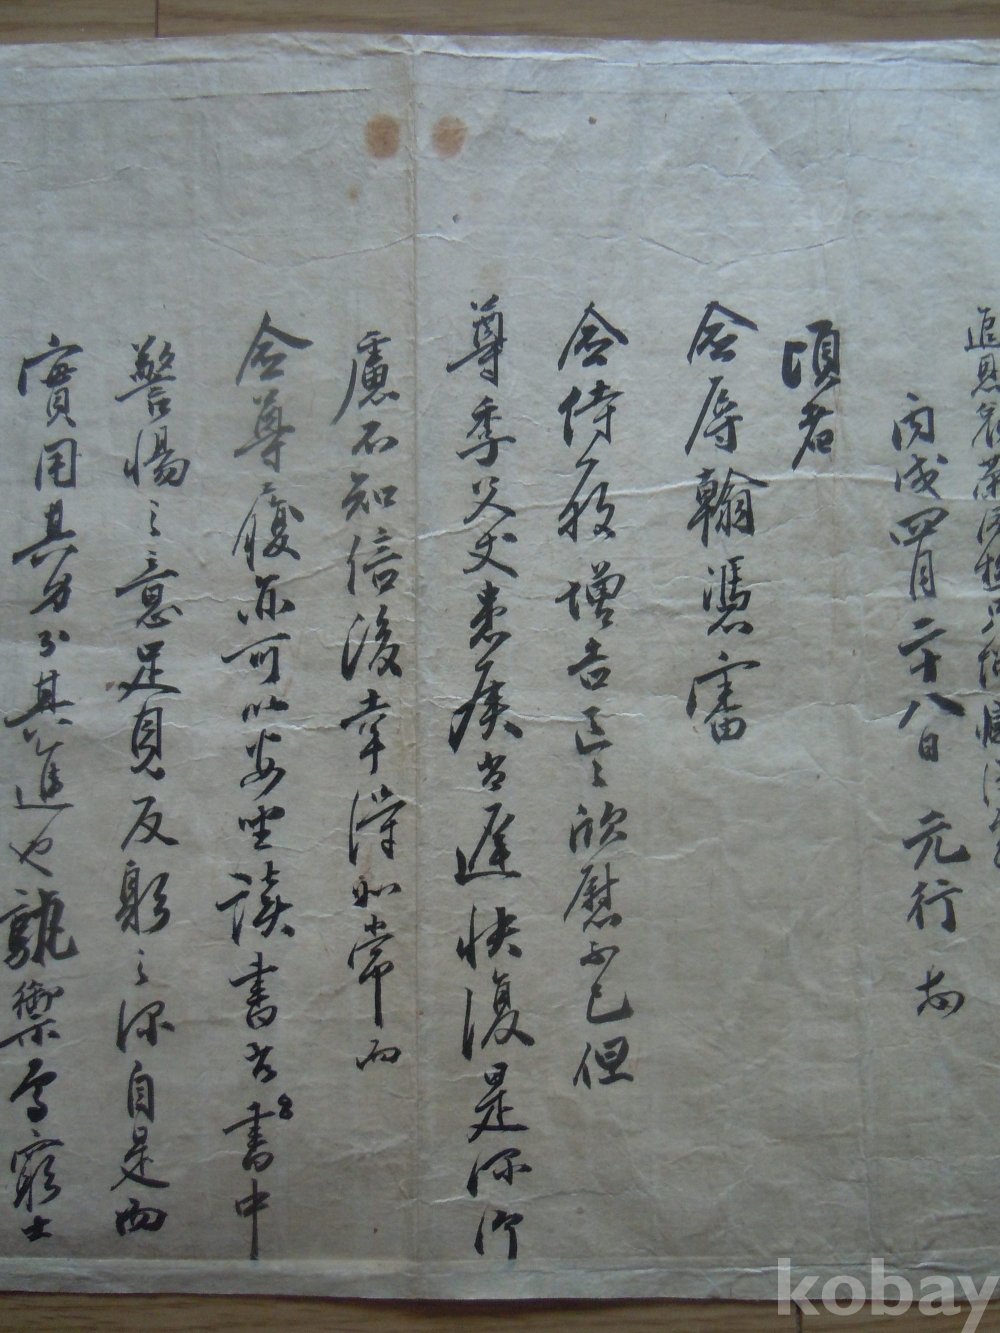 丙戌四月二十八日 元行 
頃者
令辱翰憑審
令侍履增吉 欣慰不已但
尊季父丈患候尚遲快復是深仰
慮不知信後幸得如常而
令尊履亦可以安坐讀書否書中
警惕之意足見反躬之深自是而
實用其力於其進也孰禦焉窮士
kobay